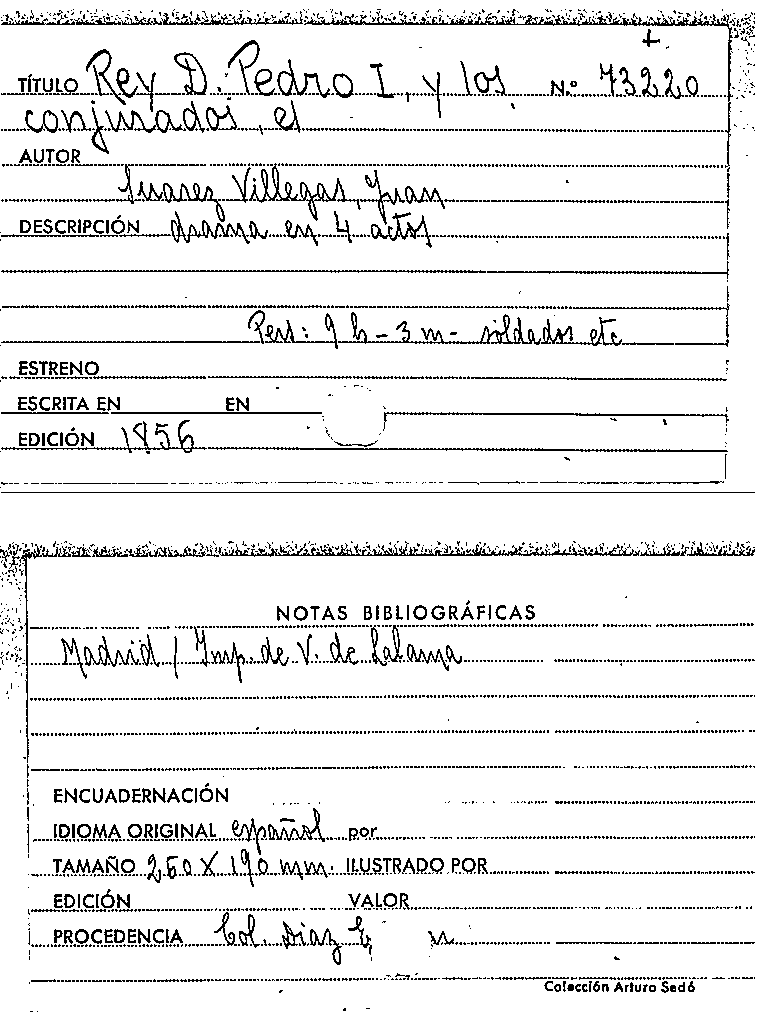 +
TÍTULO Rey D. Pedro I, y los N.º 73220
conjurados, el
AUTOR
Suarez Villegas, Juan
DESCRIPCIÓN drama en 4 actos
Pers: 9 h - 3 m - soldados etc
ESTRENO
ESCRITA EN EN
EDICIÓN 1856
NOTAS BIBLIOGRÁFICAS
Madrid / Imp. de V. de Lalama
ENCUADERNACIÓN
IDIOMA ORIGINAL español por
TAMAÑO 260 X 190 mm. ILUSTRADO POR
EDICIÓN VALOR
PROCEDENCIA Col. Diaz E
Colección Arturo Sedó